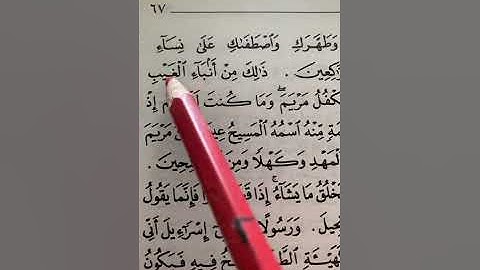 ٦٧
وَطَهَّرَكِ وَٱصْطَفَىٰكِ عَلَىٰ نِسَآءِ
ذَٰلِكَ مِنْ أَنۢبَآءِ ٱلْغَيْبِ
يَكْفُلُ مَرْيَمَ وَمَا كُنتَ إِذْ
مِّنْهُ ٱسْمُهُ ٱلْمَسِيحُ مَرْيَمَ
ٱلْمَهْدِ وَكَهْلًا وَمِنَ
يَخْلُقُ مَا يَشَآءُ إِذَا فَإِنَّمَا يَقُولُ
وَرَسُولًا إِسْرَٰٓءِيلَ أَنِّى
كَهَيْـَٔةِ فِيهِ فَيَكُونُ